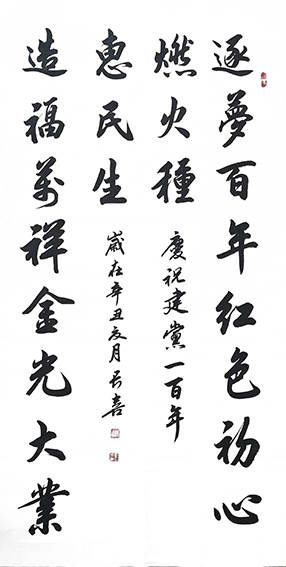 逐夢百年红色初心
燃火種
慶祝建黨一百年
造福萬祥金光大業
惠民生
歲在辛丑夏月长喜